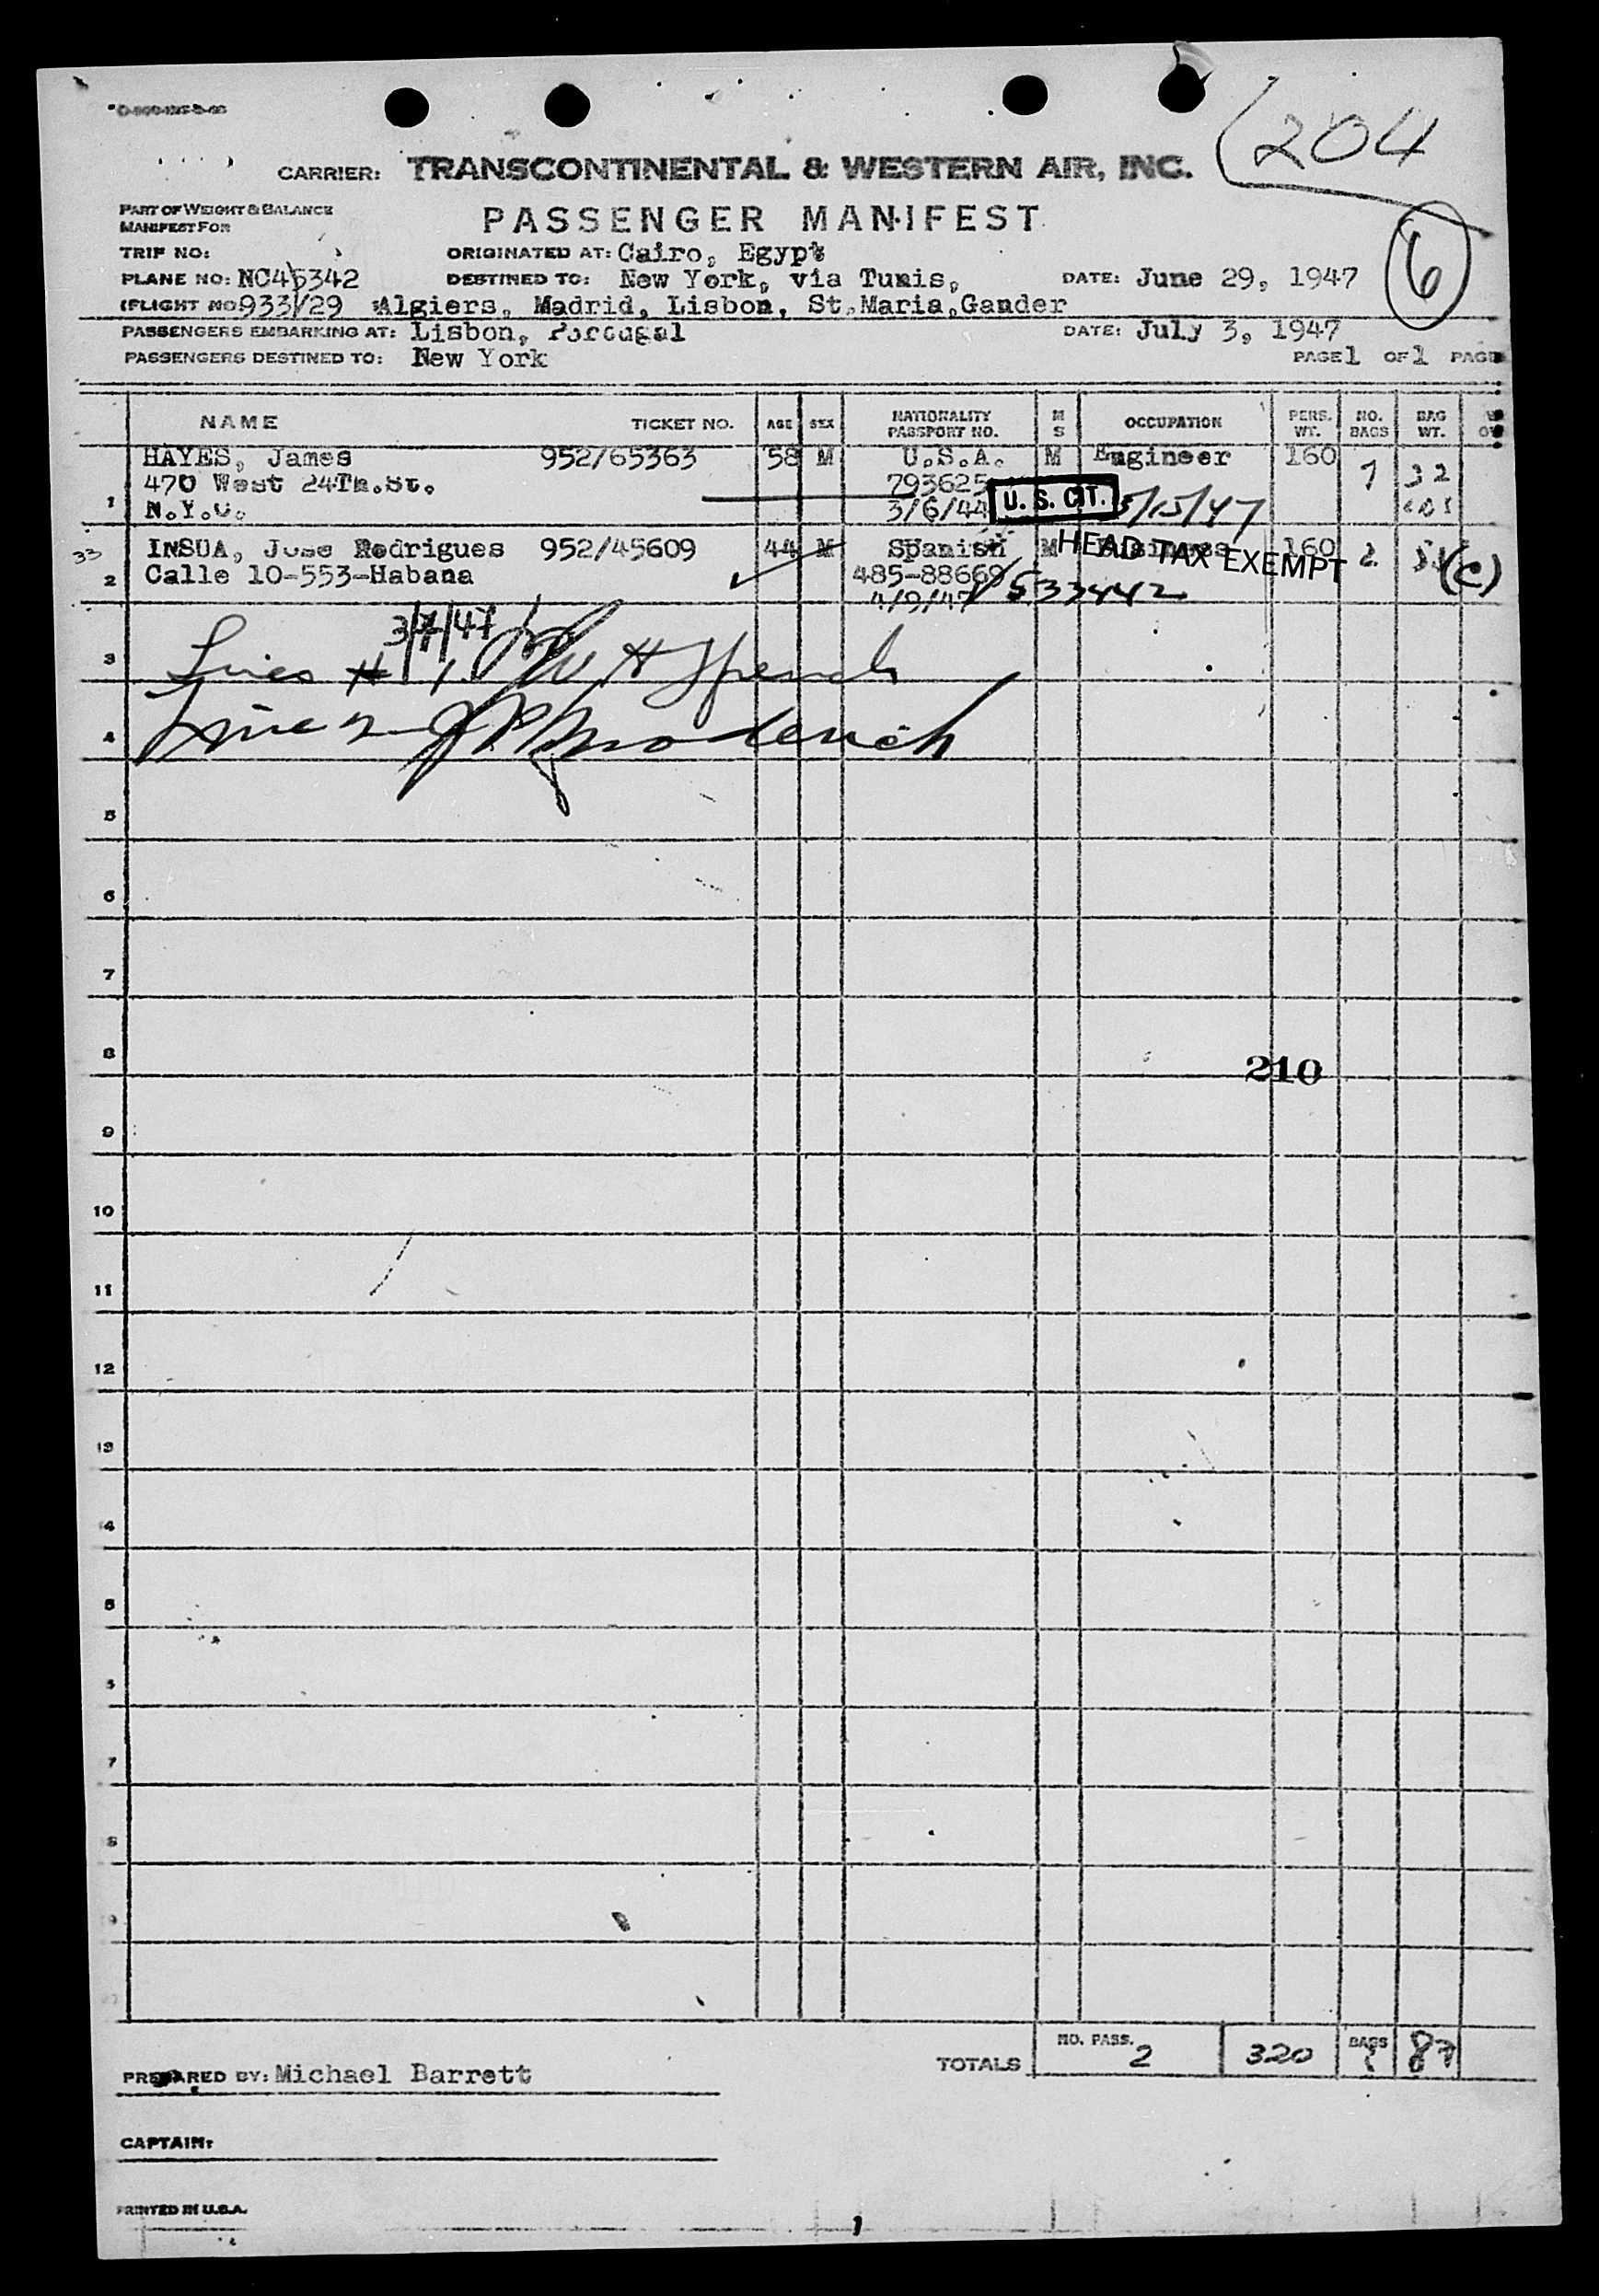 204
CARRIER: TRANSCONTINENTAL & WESTERN AIR, INC.
PART OF WEIGHT & BALANCE
MANIFEST FOR
PASSENGER MANIFEST
6
TRIP NO:
ORIGINATED AT: Cairo, Egypt
PLANE NO: NC45342
DESTINED TO: New York, via Tunis,
DATE: June 29, 1947
(FLIGHT NO 933/29 Algiers, Madrid, Lisbon, St.Maria,Gander
PASSENGERS EMBARKING AT: Lisbon, Portugal
DATE: July 3, 1947
PASSENGERS DESTINED TO: New York
PAGE 1 OF 1 PAGE
NAME TICKET NO. AGE SEX NATIONALITY PASSPORT NO. M S OCCUPATION PERS. WT. NO. BAGS BAG WT.
HAYES, James 952/65363 58 M U.S.A. M Engineer 160 1 32
470 West 24Th.St. 793625
1 N.Y.C. 3/6/44 U. S. CIT. /15/47
33 INSUA, Jose Rodrigues 952/45609 44 M Spanish M Business 160 2 (C)
HEAD TAX EXEMPT
2 Calle 10-553-Habana 485-88669
4/9/47 533442
3/7/47
3 Lines # 1 W H
4 Line 2
5
6
7
8
210
9
10
11
12
13
4
5
7
TOTALS NO. PASS. 2 320 BAGS 87
PREPARED BY: Michael Barrett
CAPTAIN:
PRINTED IN U.S.A.